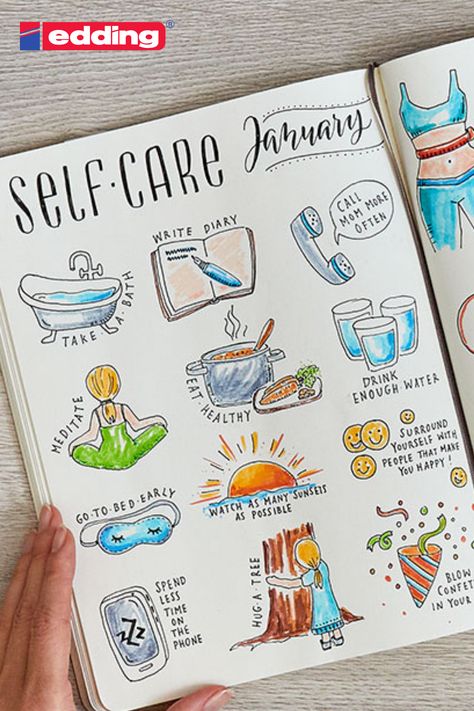 edding®
SELF·CARE January
TAKE·A·BATH
WRITE DIARY
CALL
MOM MORE
OFTEN
MEDITATE
EAT HEALTHY
DRINK
ENOUGH WATER
GO·TO·BED·EARLY
WATCH AS MANY SUNSETS
AS POSSIBLE
SURROUND
YOURSELF WITH
PEOPLE THAT MAKE
YOU HAPPY!
SPEND
LESS
TIME
ON
THE
PHONE
ZZZ
HUG·A·TREE
BLOW
CONFET
IN YOUR